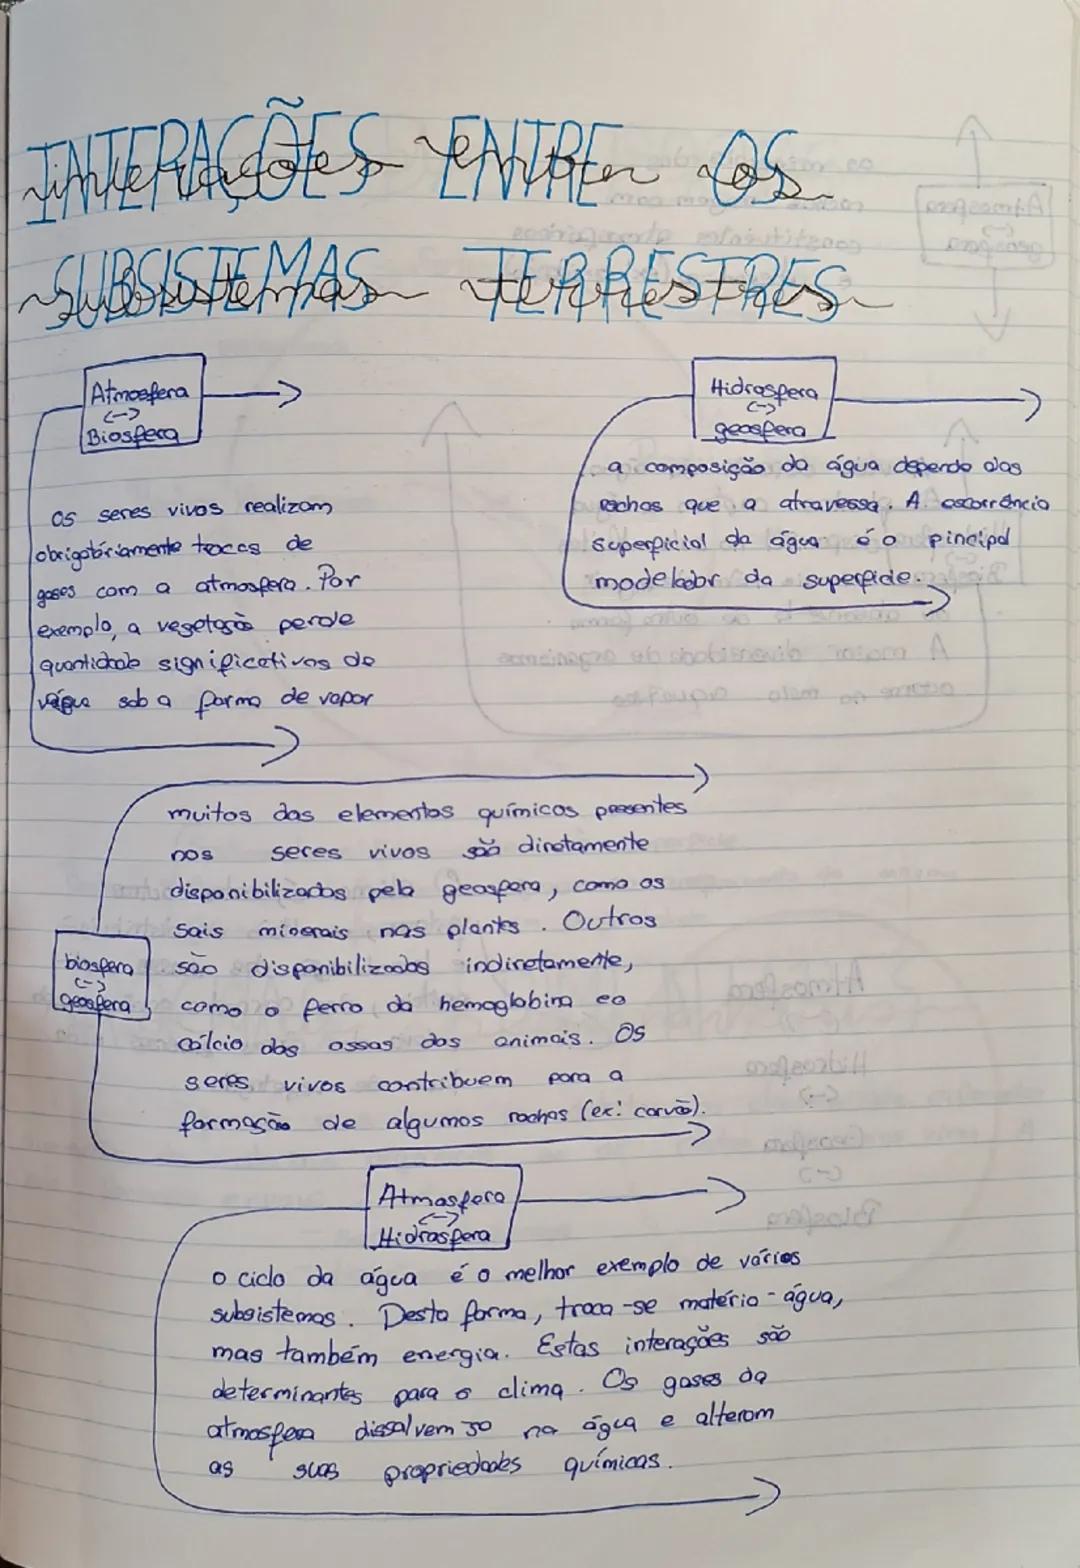 INTERAÇÕES ENTRE OS
SUBSISTEMAS TERRESTRES
Atmosfera
<->
Biosfera
os seres vivos realizam
obrigatóriamente trocas de
gases com a atmosfera. Por
exemplo, a vegetação perde
quantidade significativas de
água sob a forma de vapor
Hidrosfera
<->
geosfera
a composição da água depende das
rochas que a atravessa. A escorrência
superficial da água é o pincipal
modelador da superfície.
muitos dos elementos químicos presentes
nos seres vivos são diretamente
disponibilizados pela geosfera, como os
sais minerais nas plantes. Outros
são disponibilizados indiretamente,
como o ferro da hemoglobina e o
cálcio dos ossos dos animais. Os
seres vivos contribuem para a
formação de algumas rochas (ex: carvão).
biosfera
<->
geosfera
Atmosfera
<->
Hidrosfera
o ciclo da água é o melhor exemplo de vários
subsistemas. Desta forma, troca-se matéria - água,
mas também energia. Estas interações são
determinantes para o clima. Os gases da
atmosfera dissolvem so na água e alteram
as suas propriedades químicas.